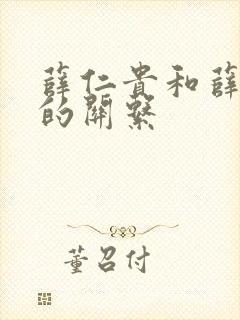 薛仁貴和薛
的關繫
董召付